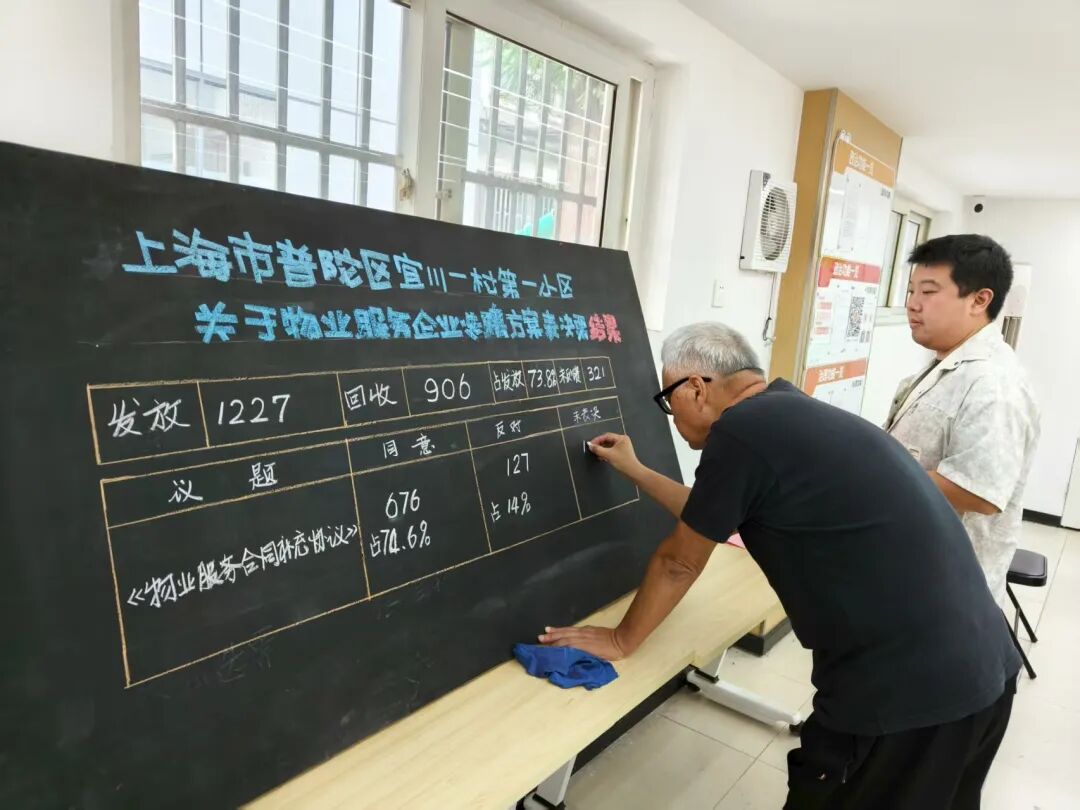 上海市普陀区宜川一村第一小区
关于物业服务企业选聘方案表决票结果
发放 1227 回收 906 占发放 73.8% 未回收 321
议题 同意 反对 未表决
《物业服务合同补充协议》 676 127
占74.6% 占14%